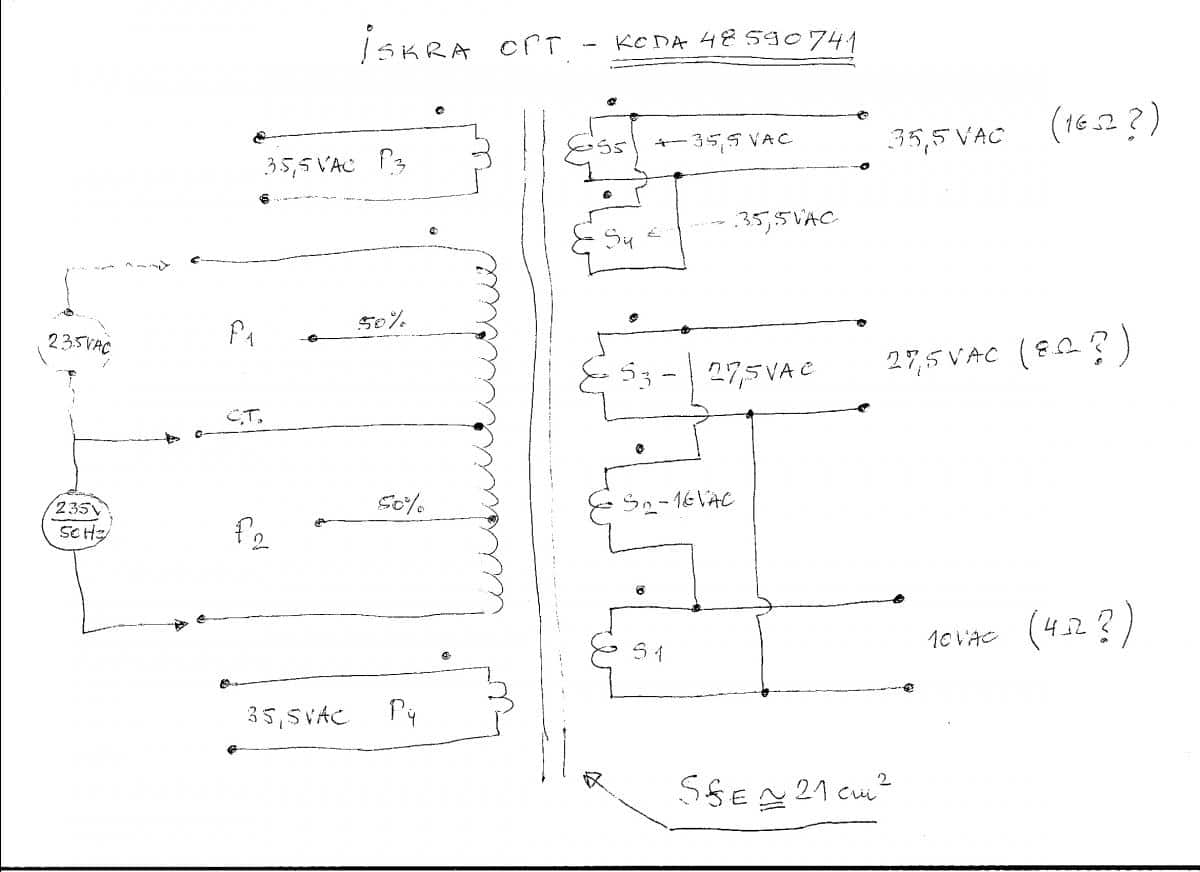 İSKRA OPT. - KODA 48590741
35,5 VAC P3
S5 35,5 VAC
35,5 VAC (16Ω?)
S4 35,5 VAC
235VAC
P1
50%
S3 - 27,5 VAC
27,5 VAC (8Ω?)
C.T.
235V
50Hz
P2
50%
S2 - 16VAC
S1
10VAC (4Ω?)
35,5VAC P4
SFE ≅ 21 cm²